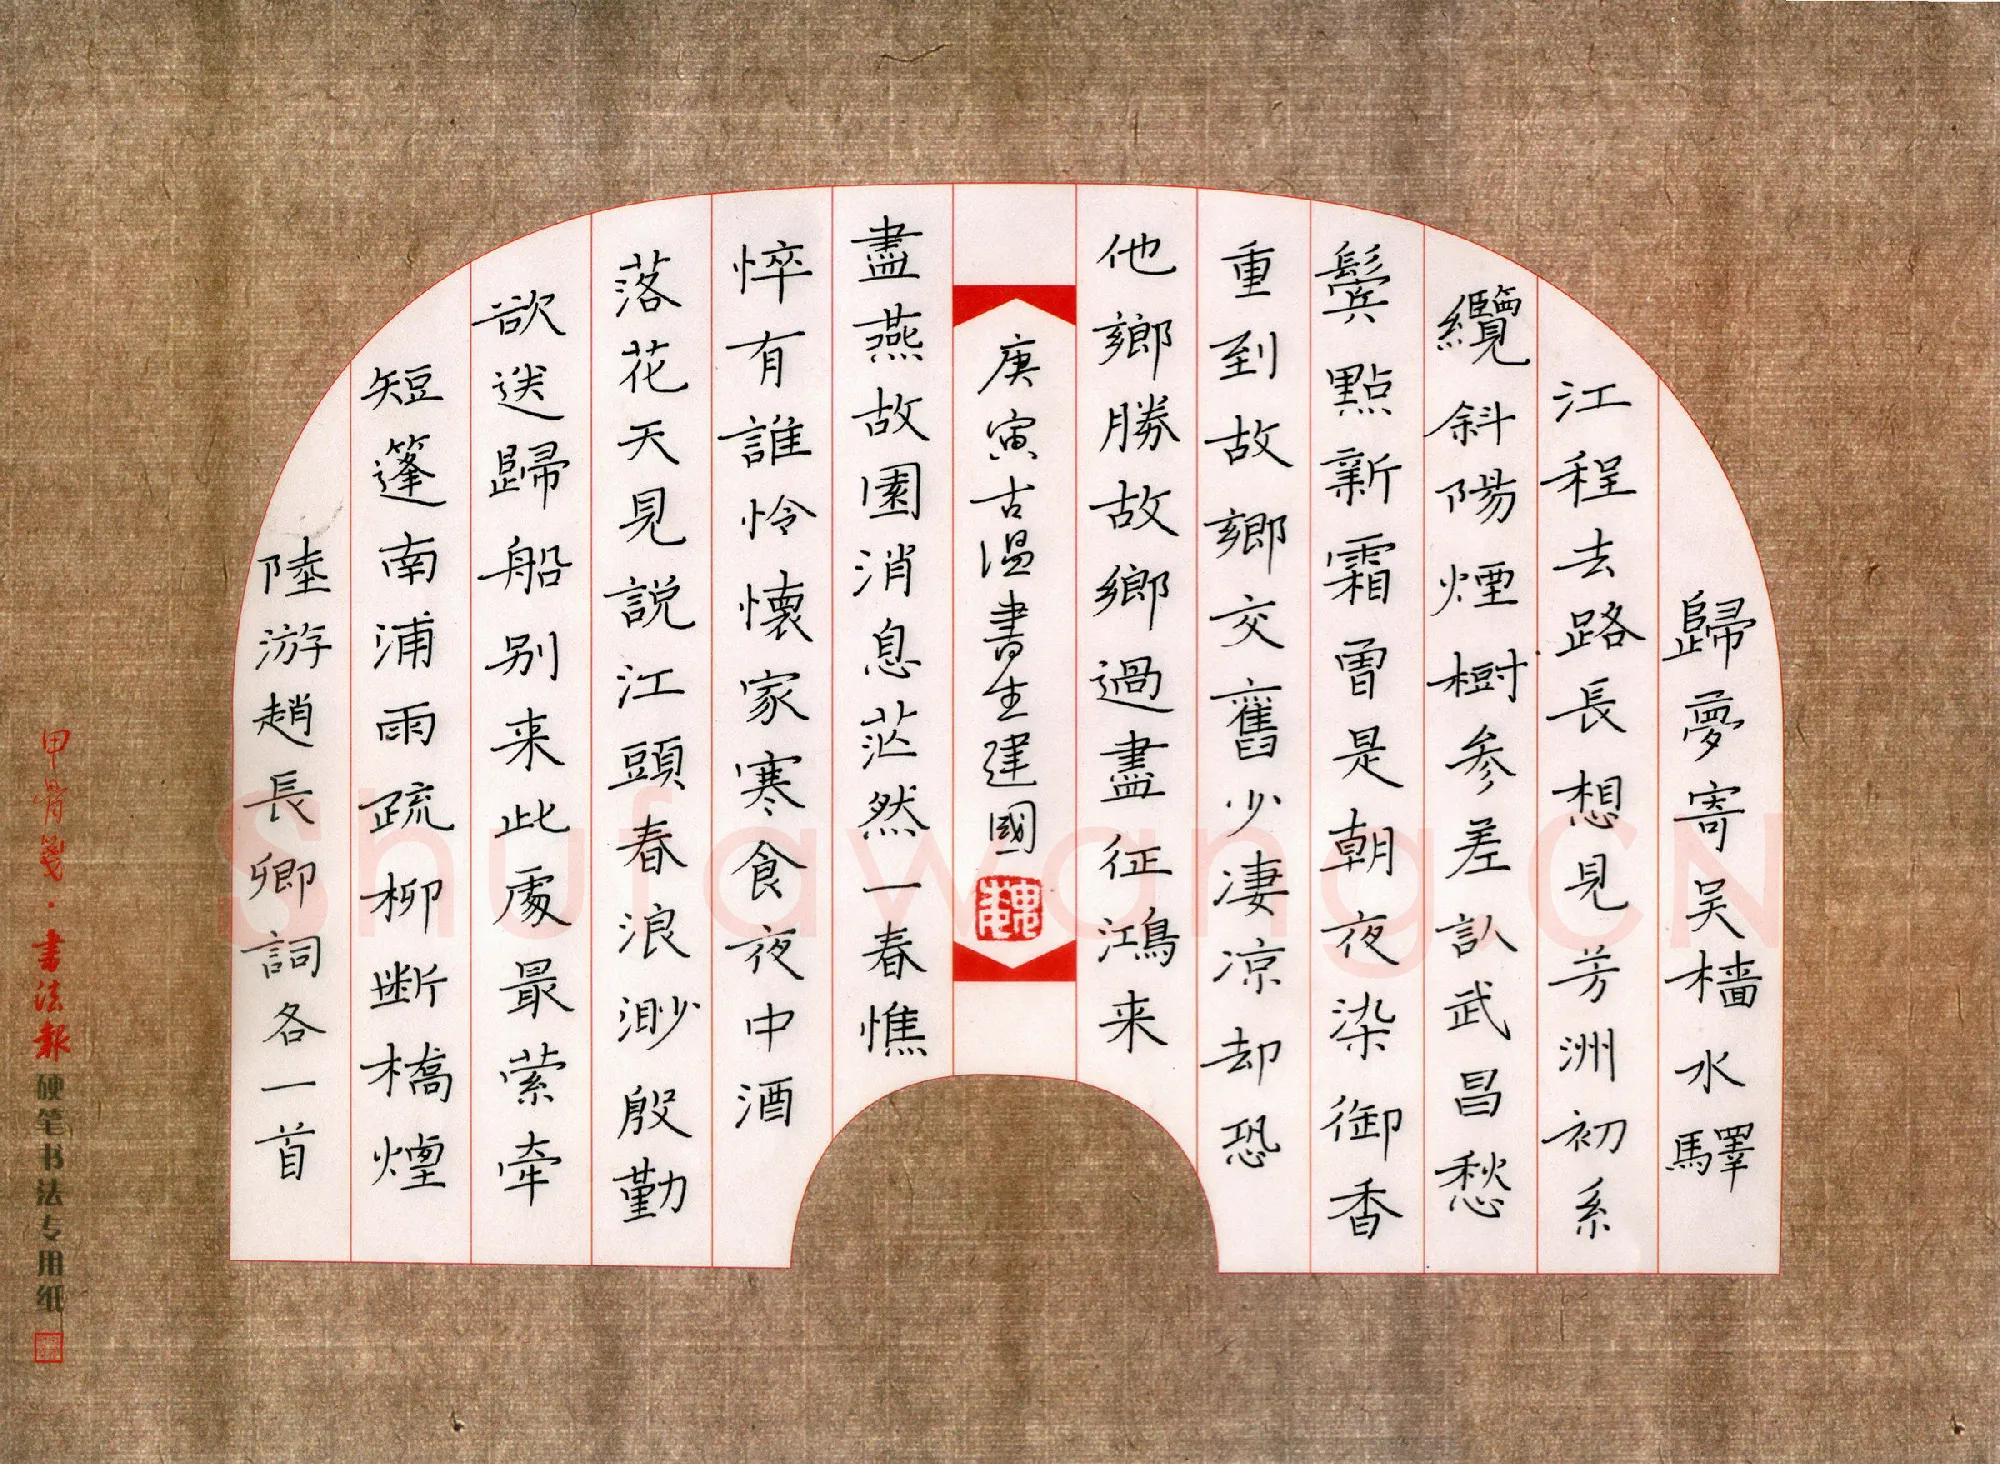 歸夢寄吴檣水驛
江程去路長想見芳洲初系
纜斜陽煙樹參差認武昌愁
鬢點新霜曾是朝夜染御香
重到故鄉交舊少凄凉却恐
他鄉勝故鄉過盡征鴻来
庚寅古温書生建國
魏
盡燕故園消息茫然一春憔
悴有誰怜懷家寒食夜中酒
落花天見説江頭春浪渺殷勤
欲送歸船别来此處最縈牽
短篷南浦雨疏柳断橋煙
陸游趙長卿詞各一首
甲骨箋·書法報硬笔书法专用纸
Shufawang.CN